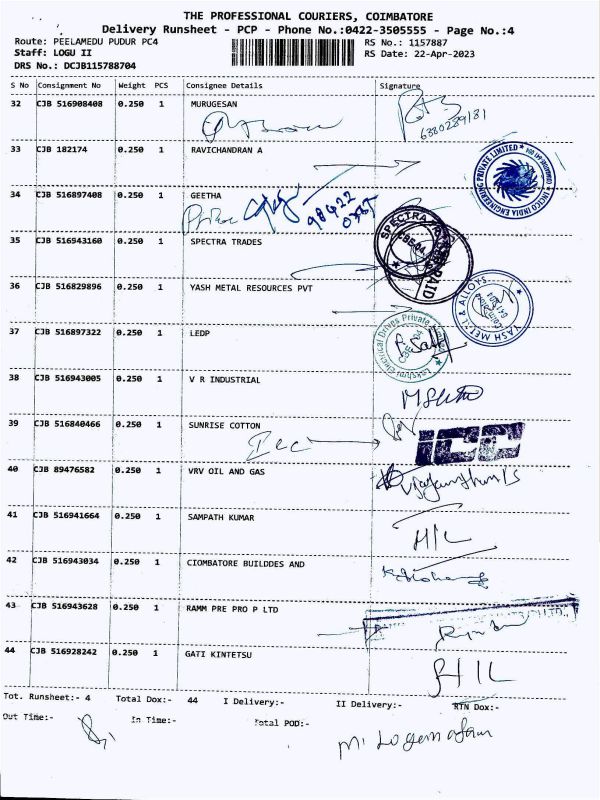 THE PROFESSIONAL COURIERS, COIMBATORE
Delivery Runsheet - PCP - Phone No.:0422-3505555 - Page No.:4
Route: PEELAMEDU PUDUR PC4 RS No.: 1157887
Staff: LOGU II RS Date: 22-Apr-2023
DRS No.: DCJB115788704
S No Consignment No Weight PCS Consignee Details Signature
32 CJB 516908408 0.250 1 MURUGESAN
6380289131
33 CJB 182174 0.250 1 RAVICHANDRAN A
INGCO INDIA ENGINEERING PRIVATE LIMITED
34 CJB 516897408 0.250 1 GEETHA
98422
35 CJB 516943160 0.250 1 SPECTRA TRADES
SPECTRA
CBE-04
36 CJB 516829896 0.250 1 YASH METAL RESOURCES PVT
YASH METAL & ALLOYS
37 CJB 516897322 0.250 1 LEDP
Lakshmi Electrical Drives Private
38 CJB 516943005 0.250 1 V R INDUSTRIAL
39 CJB 516840466 0.250 1 SUNRISE COTTON
ICC
40 CJB 89476582 0.250 1 VRV OIL AND GAS
41 CJB 516941664 0.250 1 SAMPATH KUMAR
H/L
42 CJB 516943034 0.250 1 CIOMBATORE BUILDDES AND
43 CJB 516943628 0.250 1 RAMM PRE PRO P LTD
44 CJB 516928242 0.250 1 GATI KINTETSU
Tot. Runsheet:- 4 Total Dox:- 44 I Delivery:- II Delivery:- RTN Dox:-
Out Time:- In Time:- Total POD:-